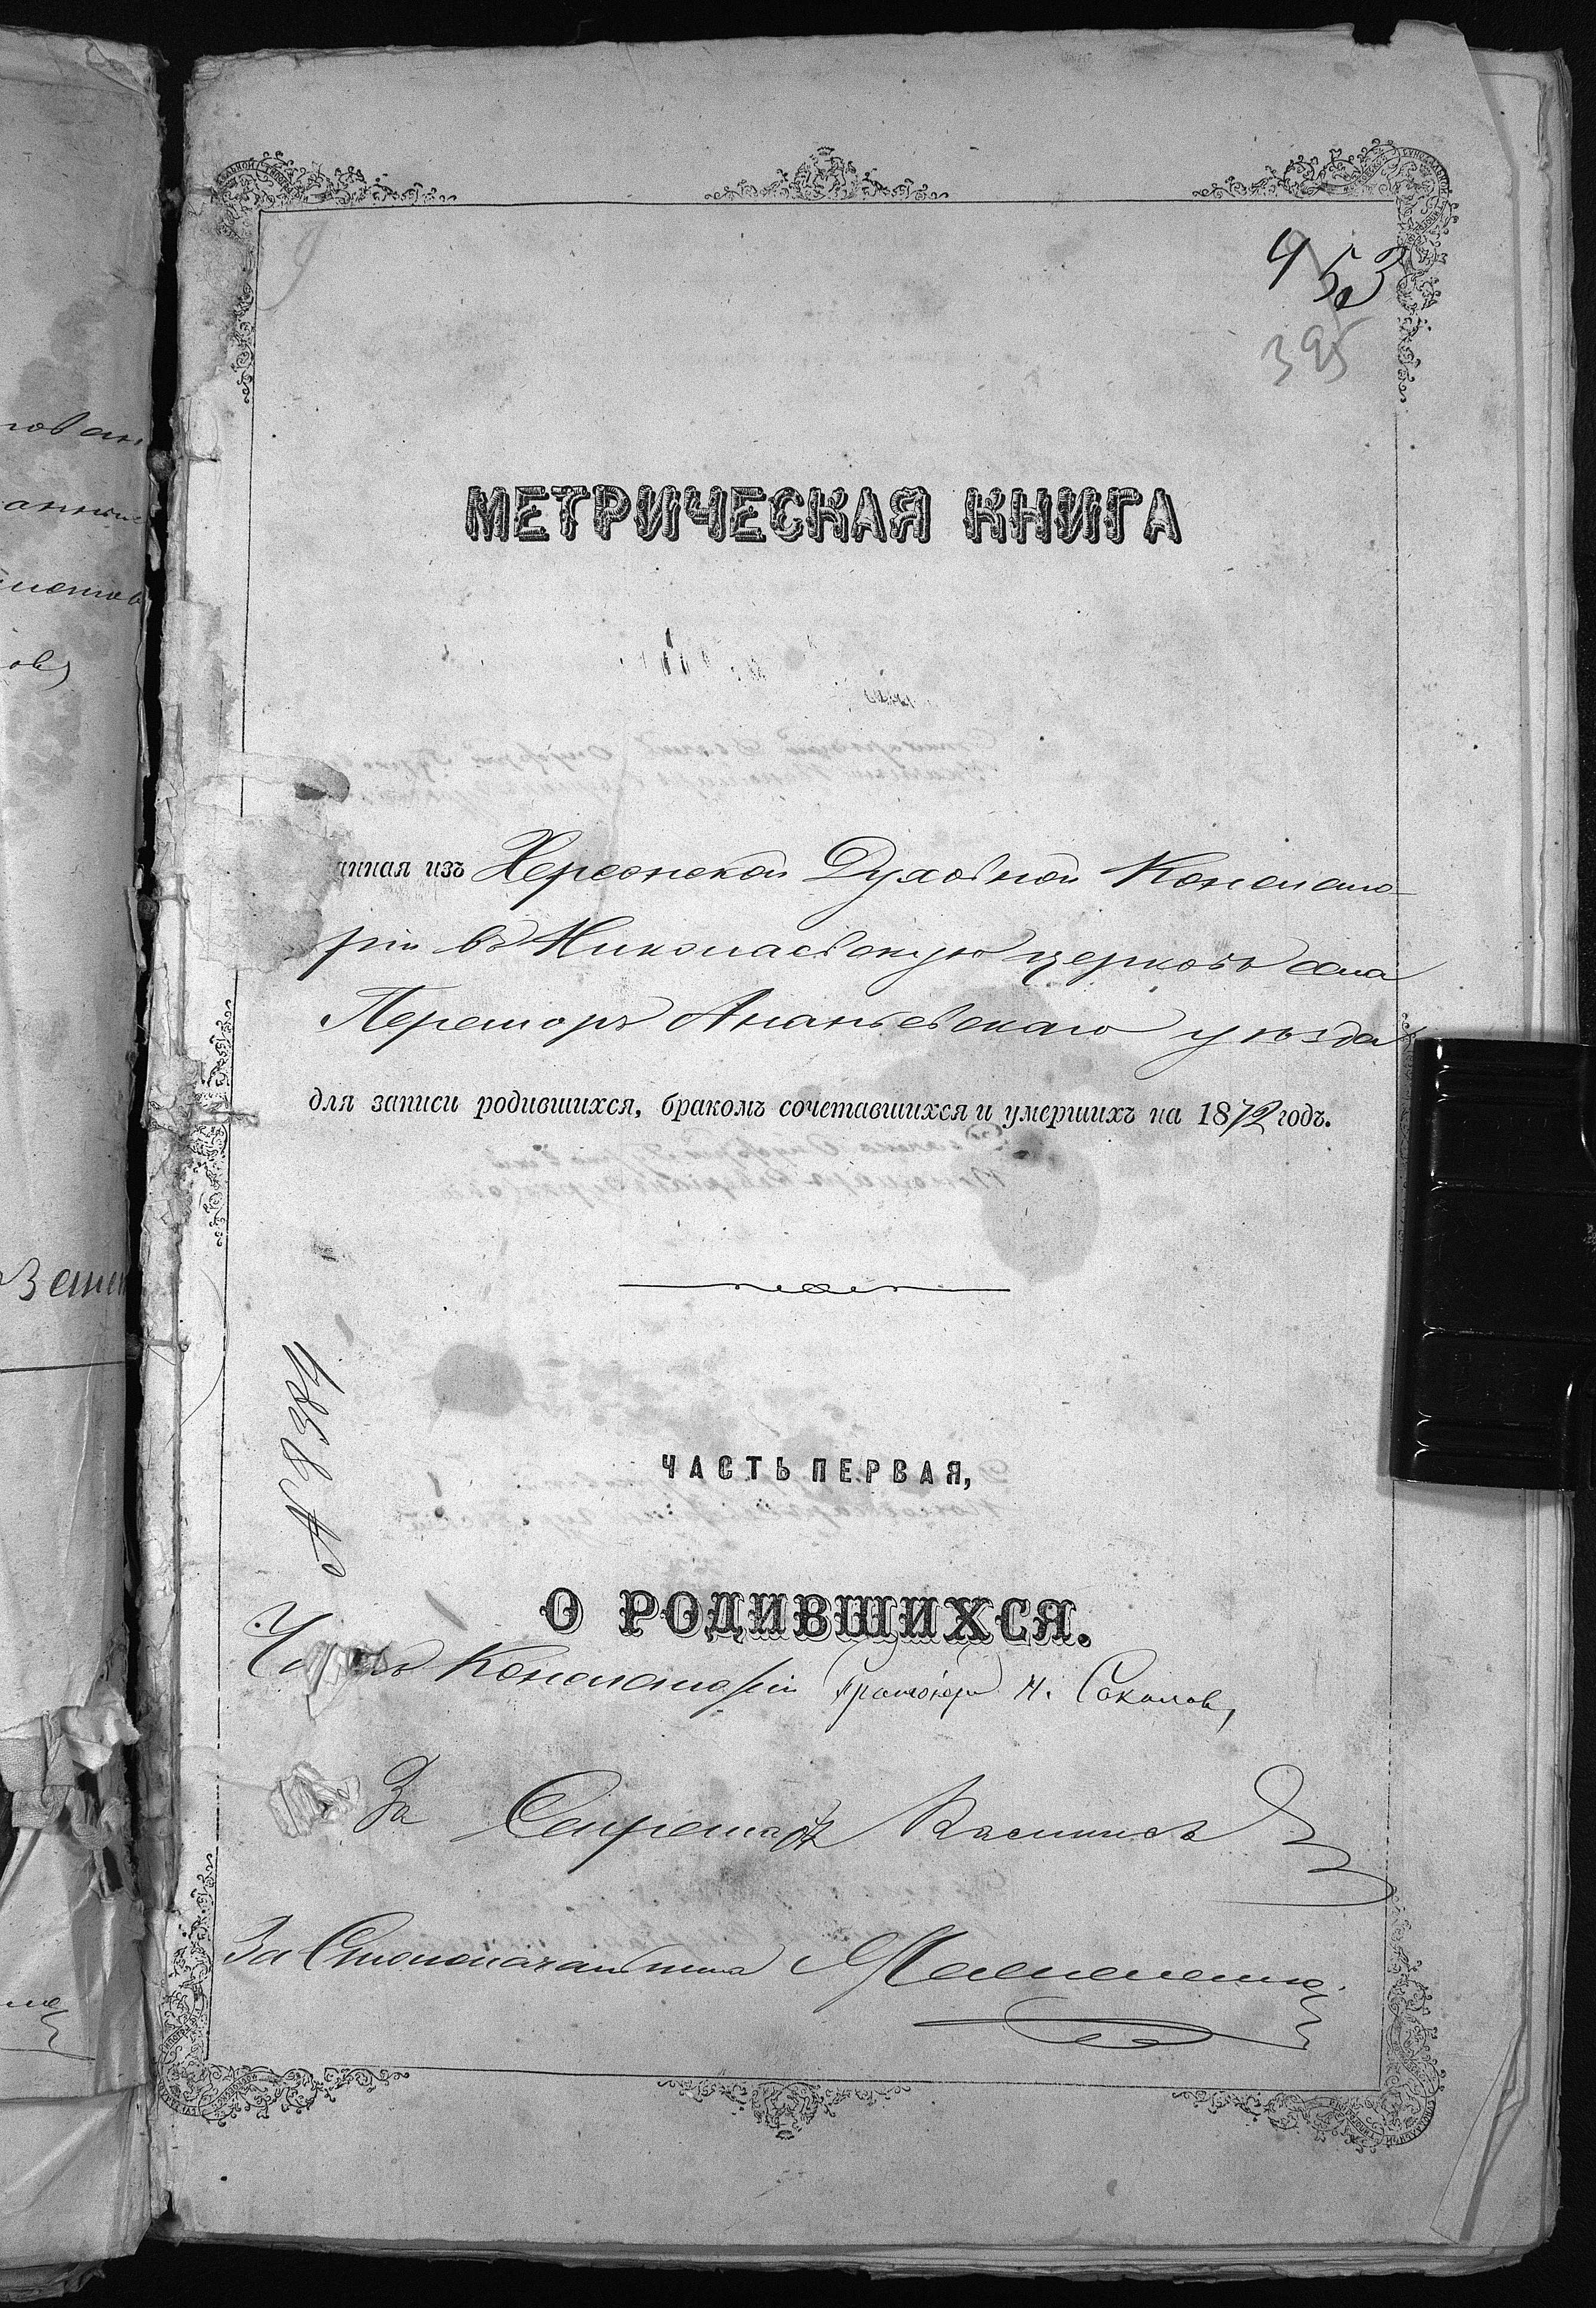 453
395
МЕТРИЧЕСКАЯ КНИГА
анная изъ Херсонской Духовной Консисто-
ріи въ Николаевскую церковь села
Перешоръ Ананьевскаго уѣзда
для записи родившихся, бракомъ сочетавшихся и умершихъ на 1872 годъ.
№ 8384
ЧАСТЬ ПЕРВАЯ,
О РОДИВШИХСЯ.
Консисторіи Протоіерей Н. Соколовъ
За Секретаря
За Столоначальника